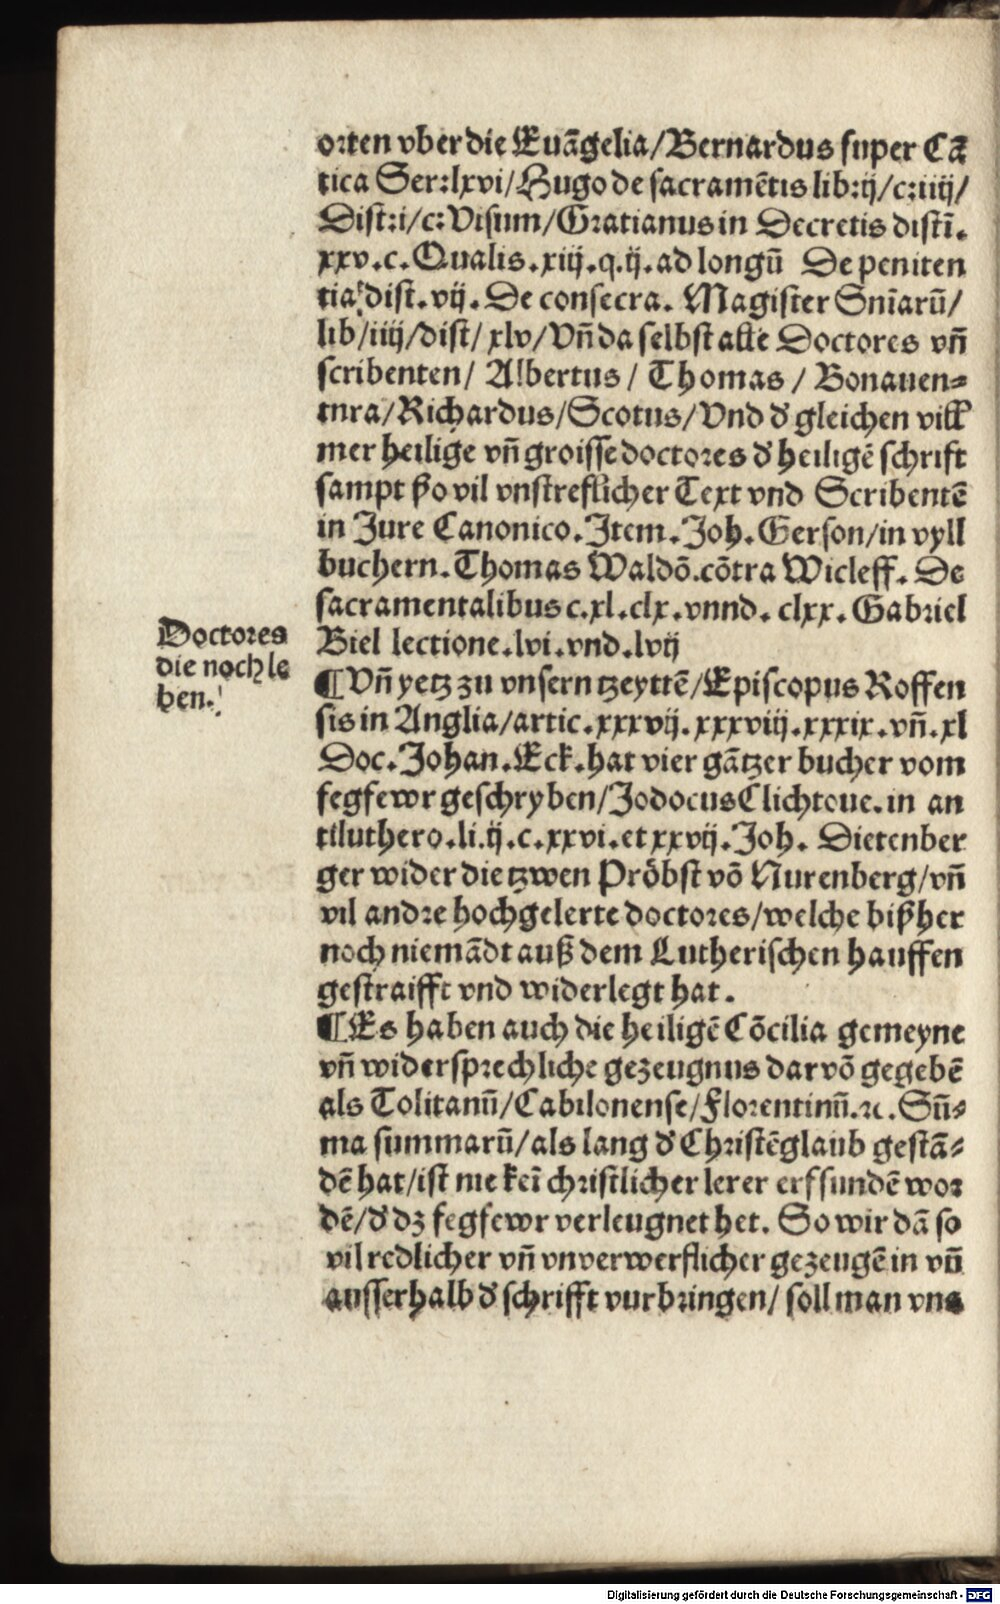 orten vber die Euãgelia/Bernardus super Cã
tica Ser:lxvi/Hugo de sacramẽtis lib:ij/c:iiij/
Dist:i/c:Visum/Gratianus in Decretis distĩ.
xxv.c.Qualis.xiij.q.ij.ad longũ De peniten
tia dist.vij.De consecra. Magister Snĩarũ/
lib/iiij/dist/xlv/Vñ da selbst alle Doctores vñ
scribenten/ Albertus/ Thomas/ Bonauen-
tnra/Richardus/Scotus/Vnd d' gleichen vill
mer heilige vñ groisse doctores d' heiligẽ schrift
sampt ßo vil vnstreflicher Text vnd Scribentẽ
in Jure Canonico.Item.Joh.Gerson/in vyll
buchern.Thomas Waldõ.cõtra Wicleff. De
sacramentalibus c.xl.clx.vnnd.clxx.Gabriel
Biel lectione.lvi.vnd.lvij
Doctores
die noch le
ben.
¶Vñ yetz zu vnsern tzeyttẽ/Episcopus Roffen
sis in Anglia/artic.xxxvij.xxxviij.xxxix.vñ.xl
Doc.Johan.Eck.hat vier gãtzer bucher vom
fegfewr geschryben/Jodocus Clichtoue.in an
tiluthero.li.ij.c.xxvi.et xxvij.Joh. Dietenber
ger wider die tzwen Pröbst võ Nurenberg/vñ
vil andre hochgelerte doctores/welche bißher
noch niemãdt auß dem Lutherischen hauffen
gestraifft vnd widerlegt hat.
¶Es haben auch die heiligẽ Cõcilia gemeyne
vñ widersprechliche gezeugnus darvõ gegebẽ
als Tolitanũ/Cabilonense/Florentinũ.ꝛc.Sũ-
ma summarũ/als lang d' Christẽglaub gestã-
dẽ hat/ist nie keĩ christlicher lerer erffundẽ wor
dẽ/d' dz fegfewr verleugnet het. So wir dã so
vil redlicher vñ vnverwerflicher gezeugẽ in vñ
ausserhalb d' schrifft vurbringen/ soll man vns
Digitalisierung gefördert durch die Deutsche Forschungsgemeinschaft - DFG